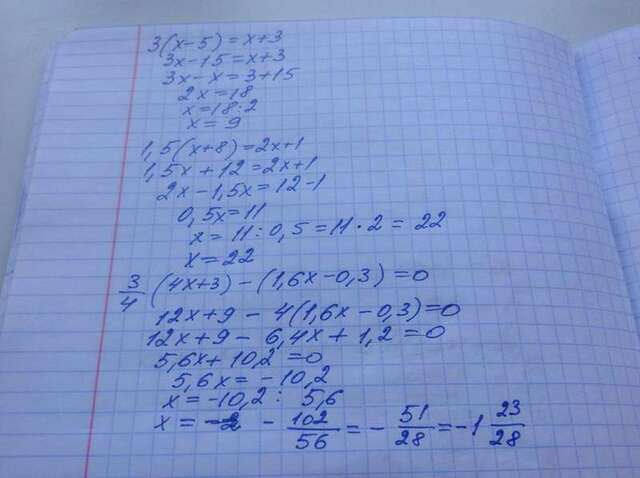 3(x-5)=x+3
3x-15=x+3
3x-x=3+15
2x=18
x=18:2
x=9
1,5(x+8)=2x+1
1,5x+12=2x+1
2x-1,5x=12-1
0,5x=11
x=11:0,5=11·2=22
x=22
3/4 (4x+3)-(1,6x-0,3)=0
12x+9-4(1,6x-0,3)=0
12x+9-6,4x+1,2=0
5,6x+10,2=0
5,6x=-10,2
x=-10,2:5,6
x= - 102/56 = - 51/28 = -1 23/28